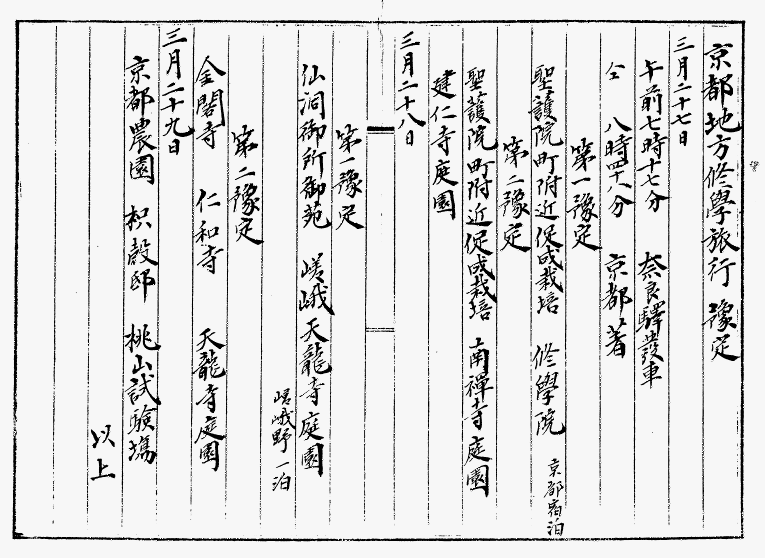 京都地方修學旅行豫定
三月二十七日
午前七時十七分　奈良驛發車
仝　八時四十八分　京都著
第一豫定
聖護院町附近促成栽培　修學院　京都宿泊
第二豫定
聖護院町附近促成栽培　南禪寺庭園
建仁寺庭園
三月二十八日
第一豫定
仙洞御所御苑　嵯峨天龍寺庭園
嵯峨野一泊
第二豫定
金閣寺　仁和寺　天龍寺庭園
三月二十九日
京都農園　枳殼邸　桃山試驗塲
以上